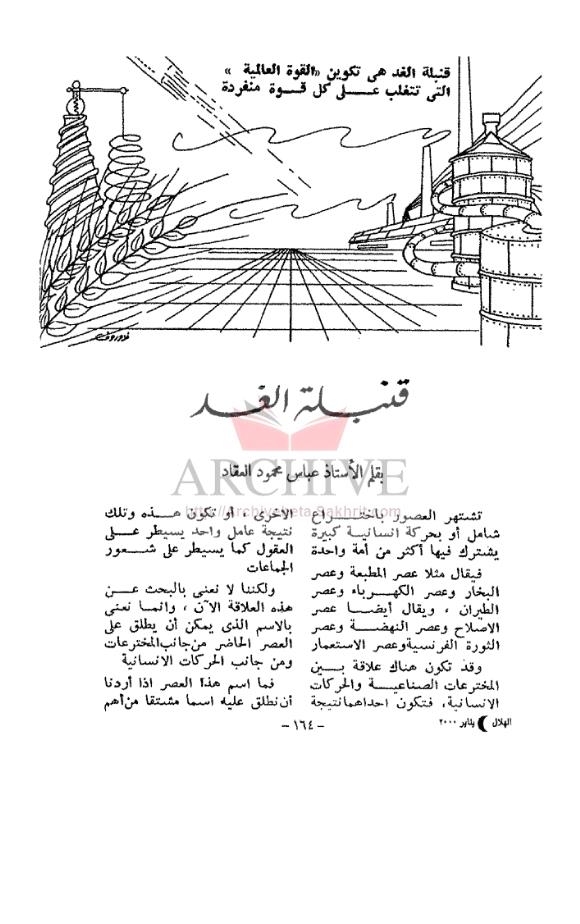 قنبلة الغد هى تكوين «القوة العالمية »
التى تتغلب عـــلى كل قـــوة منفردة
قنبـــلة الغـــد
ARCHIVE
بقلم الأستاذ عباس محمود العقاد
http://Archivebeta.Sakhrit.com
تشتهر العصور باختـــراع
شامل أو بحركة انسانيـة كبيرة
يشترك فيها أكثر من أمة واحدة
فيقال مثلا عصر المطبعة وعصر
البخار وعصر الكهـــرباء وعصر
الطيران ، ويقال أيضـا عصر
الاصلاح وعصر النهضـــة وعصر
الثورة الفرنسية وعصر الاستعمار
وقد تكون هناك علاقة بـــين
المخترعات الصناعيـــة والحركات
الانسانية، فتكون احداهما نتيجة
الاخرى ، أو تكون هـــذه وتلك
نتيجة عامل واحد يسيطر عـــلى
العقول كما يسيطر على شـــعور
الجماعات
ولكننا لا نعنى بالبحث عـــن
هذه العلاقة الآن ، وانمـا نعنى
بالاسم الذى يمكن أن يطلق على
العصر الحاضر من جانب المخترعات
ومن جانب الحركات الانسانية
فما اسم هذا العصر اذا أردنا
أن نطلق عليه اسما مشتقا من أهم
الهلال يناير ٢٠٠٠
– ١٦٤ –